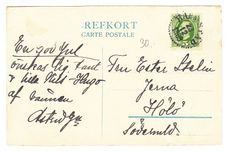 BREFKORT
CARTE POSTALE
30.
En god Jul
önskas Dig Tant
& lilla Nils-Hugo
af vännen
Fru Ester Stelin
Jerna
Hölö
Södermld.